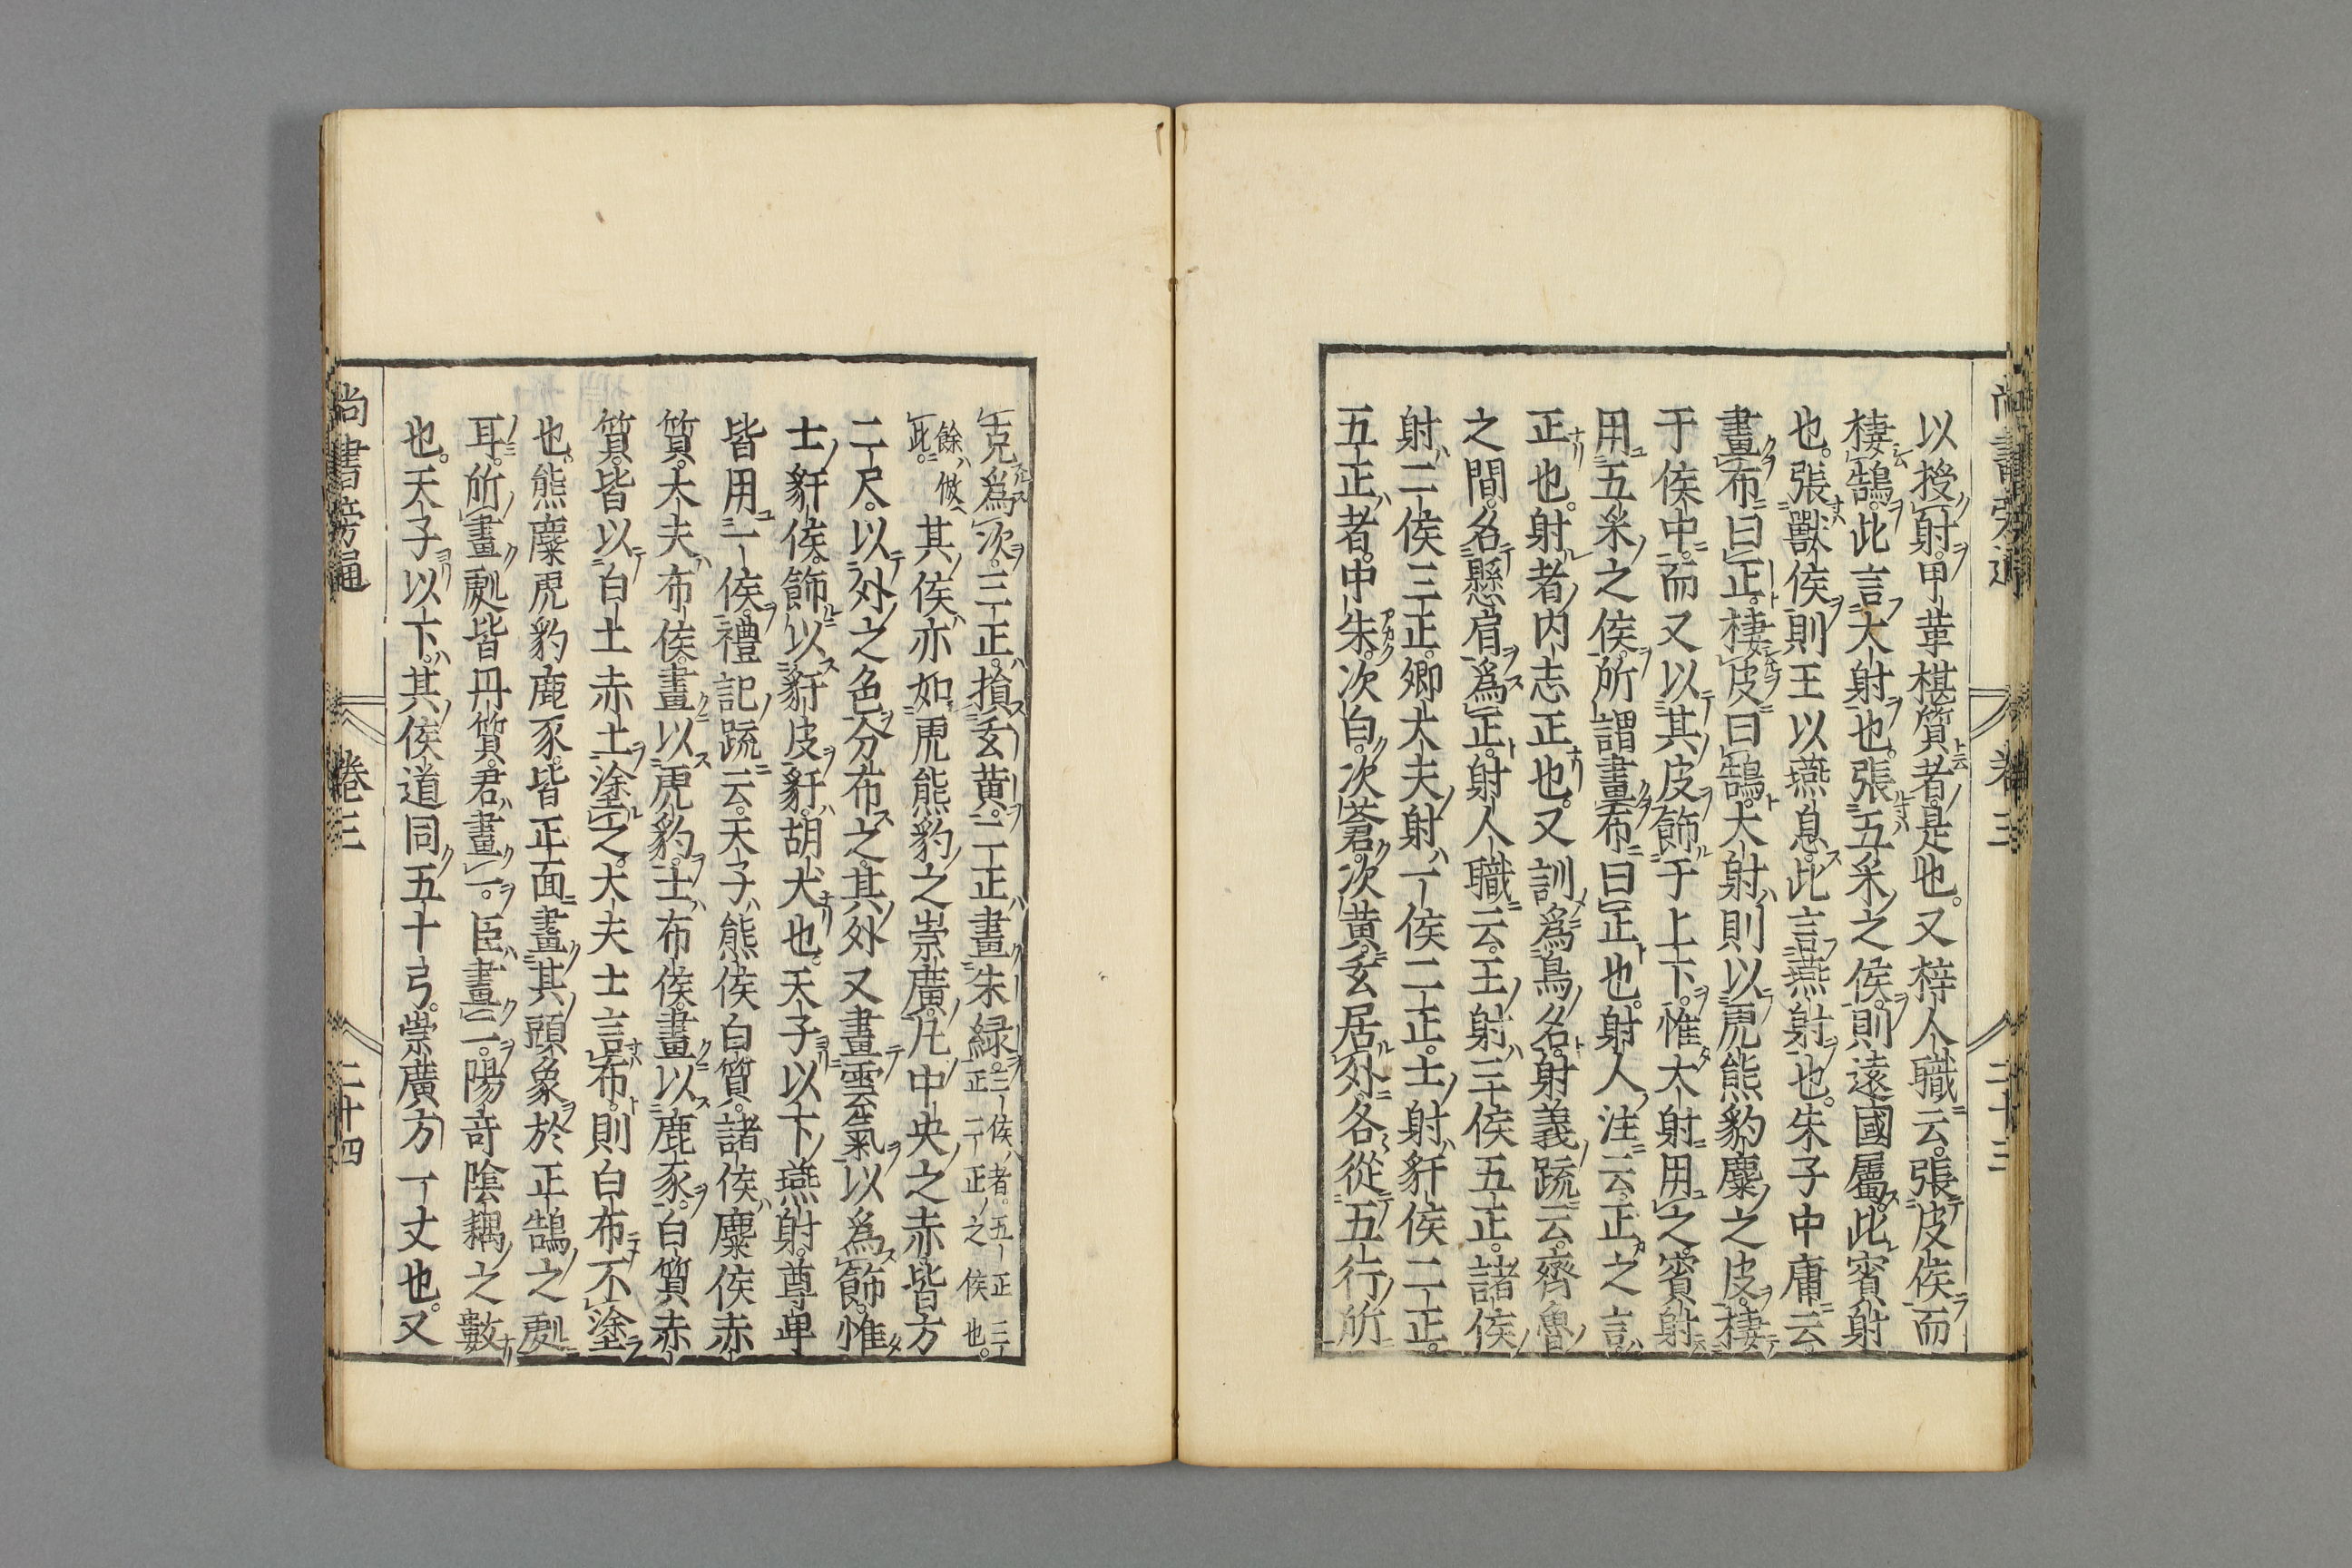 尚書旁通 卷三 二十三
以授射甲革椹質者是也。又梓人職云。張皮侯而
棲鵠。此言大射也。張五采之侯。則遠國屬。此賓射
也。張獸侯則王以燕息。此言燕射也。朱子中庸云。
畫布曰正。棲皮曰鵠。大射則以虎熊豹麋之皮。棲
于侯中。而又以其皮飾于上下。惟大射用之。賓射
用五采之侯。所謂畫布曰正也。射人注云。正之言
正也。射者内志正也。又訓爲鳥名。射義疏云。齊魯
之間。名懸肩爲正。射人職云。王射三侯五正。諸侯
射二侯三正。卿大夫射一侯二正。士射豻侯二正。
五正者。中朱。次白。次蒼。次黄。玄居外。各從五行所
克爲次。三正。損玄黄。二正畫朱緑。三侯者。五正三
正二正之侯也。
餘倣此。其侯亦如虎熊豹之崇廣。凡中央之赤皆方
二尺。以外之色分布之。其外又畫雲氣以爲飾。惟
士豻侯。飾以豻皮。豻胡犬也。天子以下燕射。尊卑
皆用一侯。禮記疏云。天子熊侯白質。諸侯麋侯赤
質。大夫布侯。畫以虎豹。士布侯。畫以鹿豕。白質赤
質皆以白土赤土塗之。大夫士言布。則白布不塗
也。熊麋虎豹鹿豕。皆正面畫其頭象於正鵠之處
耳。所畫處皆丹質。君畫一。臣畫二。陽奇陰耦之數
也。天子以下。其侯道同五十弓。崇廣方一丈也。又
尚書旁通 卷三 二十四